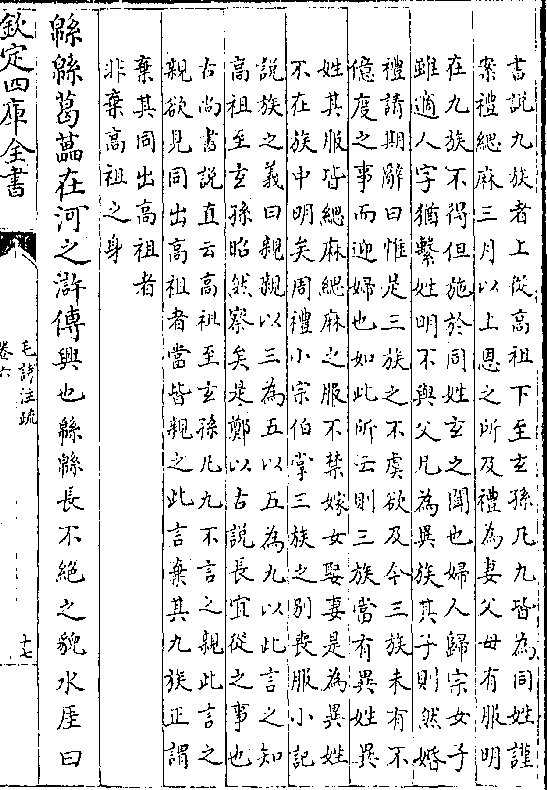 書說九族者上從高祖下至玄孫凡九皆為同姓謹
案禮緦麻三月以上恩之所及禮為妻父母有服明
在九族不得但施於同姓玄之聞也婦人歸宗女子
雖適人字猶繫姓明不與父凡為異族其子則然婚
禮請期辭曰惟是三族之不虞欲及今三族未有不
億度之事而迎婦也如此所云則三族當有異姓異
姓其服皆緦麻緦麻之服不禁嫁女娶妻是為異姓
不在族中明矣周禮小宗伯掌三族之別喪服小記
說族之義曰親親以三為五以五為九以此言之知
高祖至玄孫昭然察矣是鄭以古說長宜從之事也
古尚書說直云高祖至玄孫凡九不言之親此言之
親欲見同出高祖者當皆親之此言棄其九族正謂
棄其同出高祖者
非棄高祖之身
緜緜葛藟在河之滸傳興也緜緜長不絕之貌水厓曰
欽定四庫全書
毛詩注疏
卷六
十七